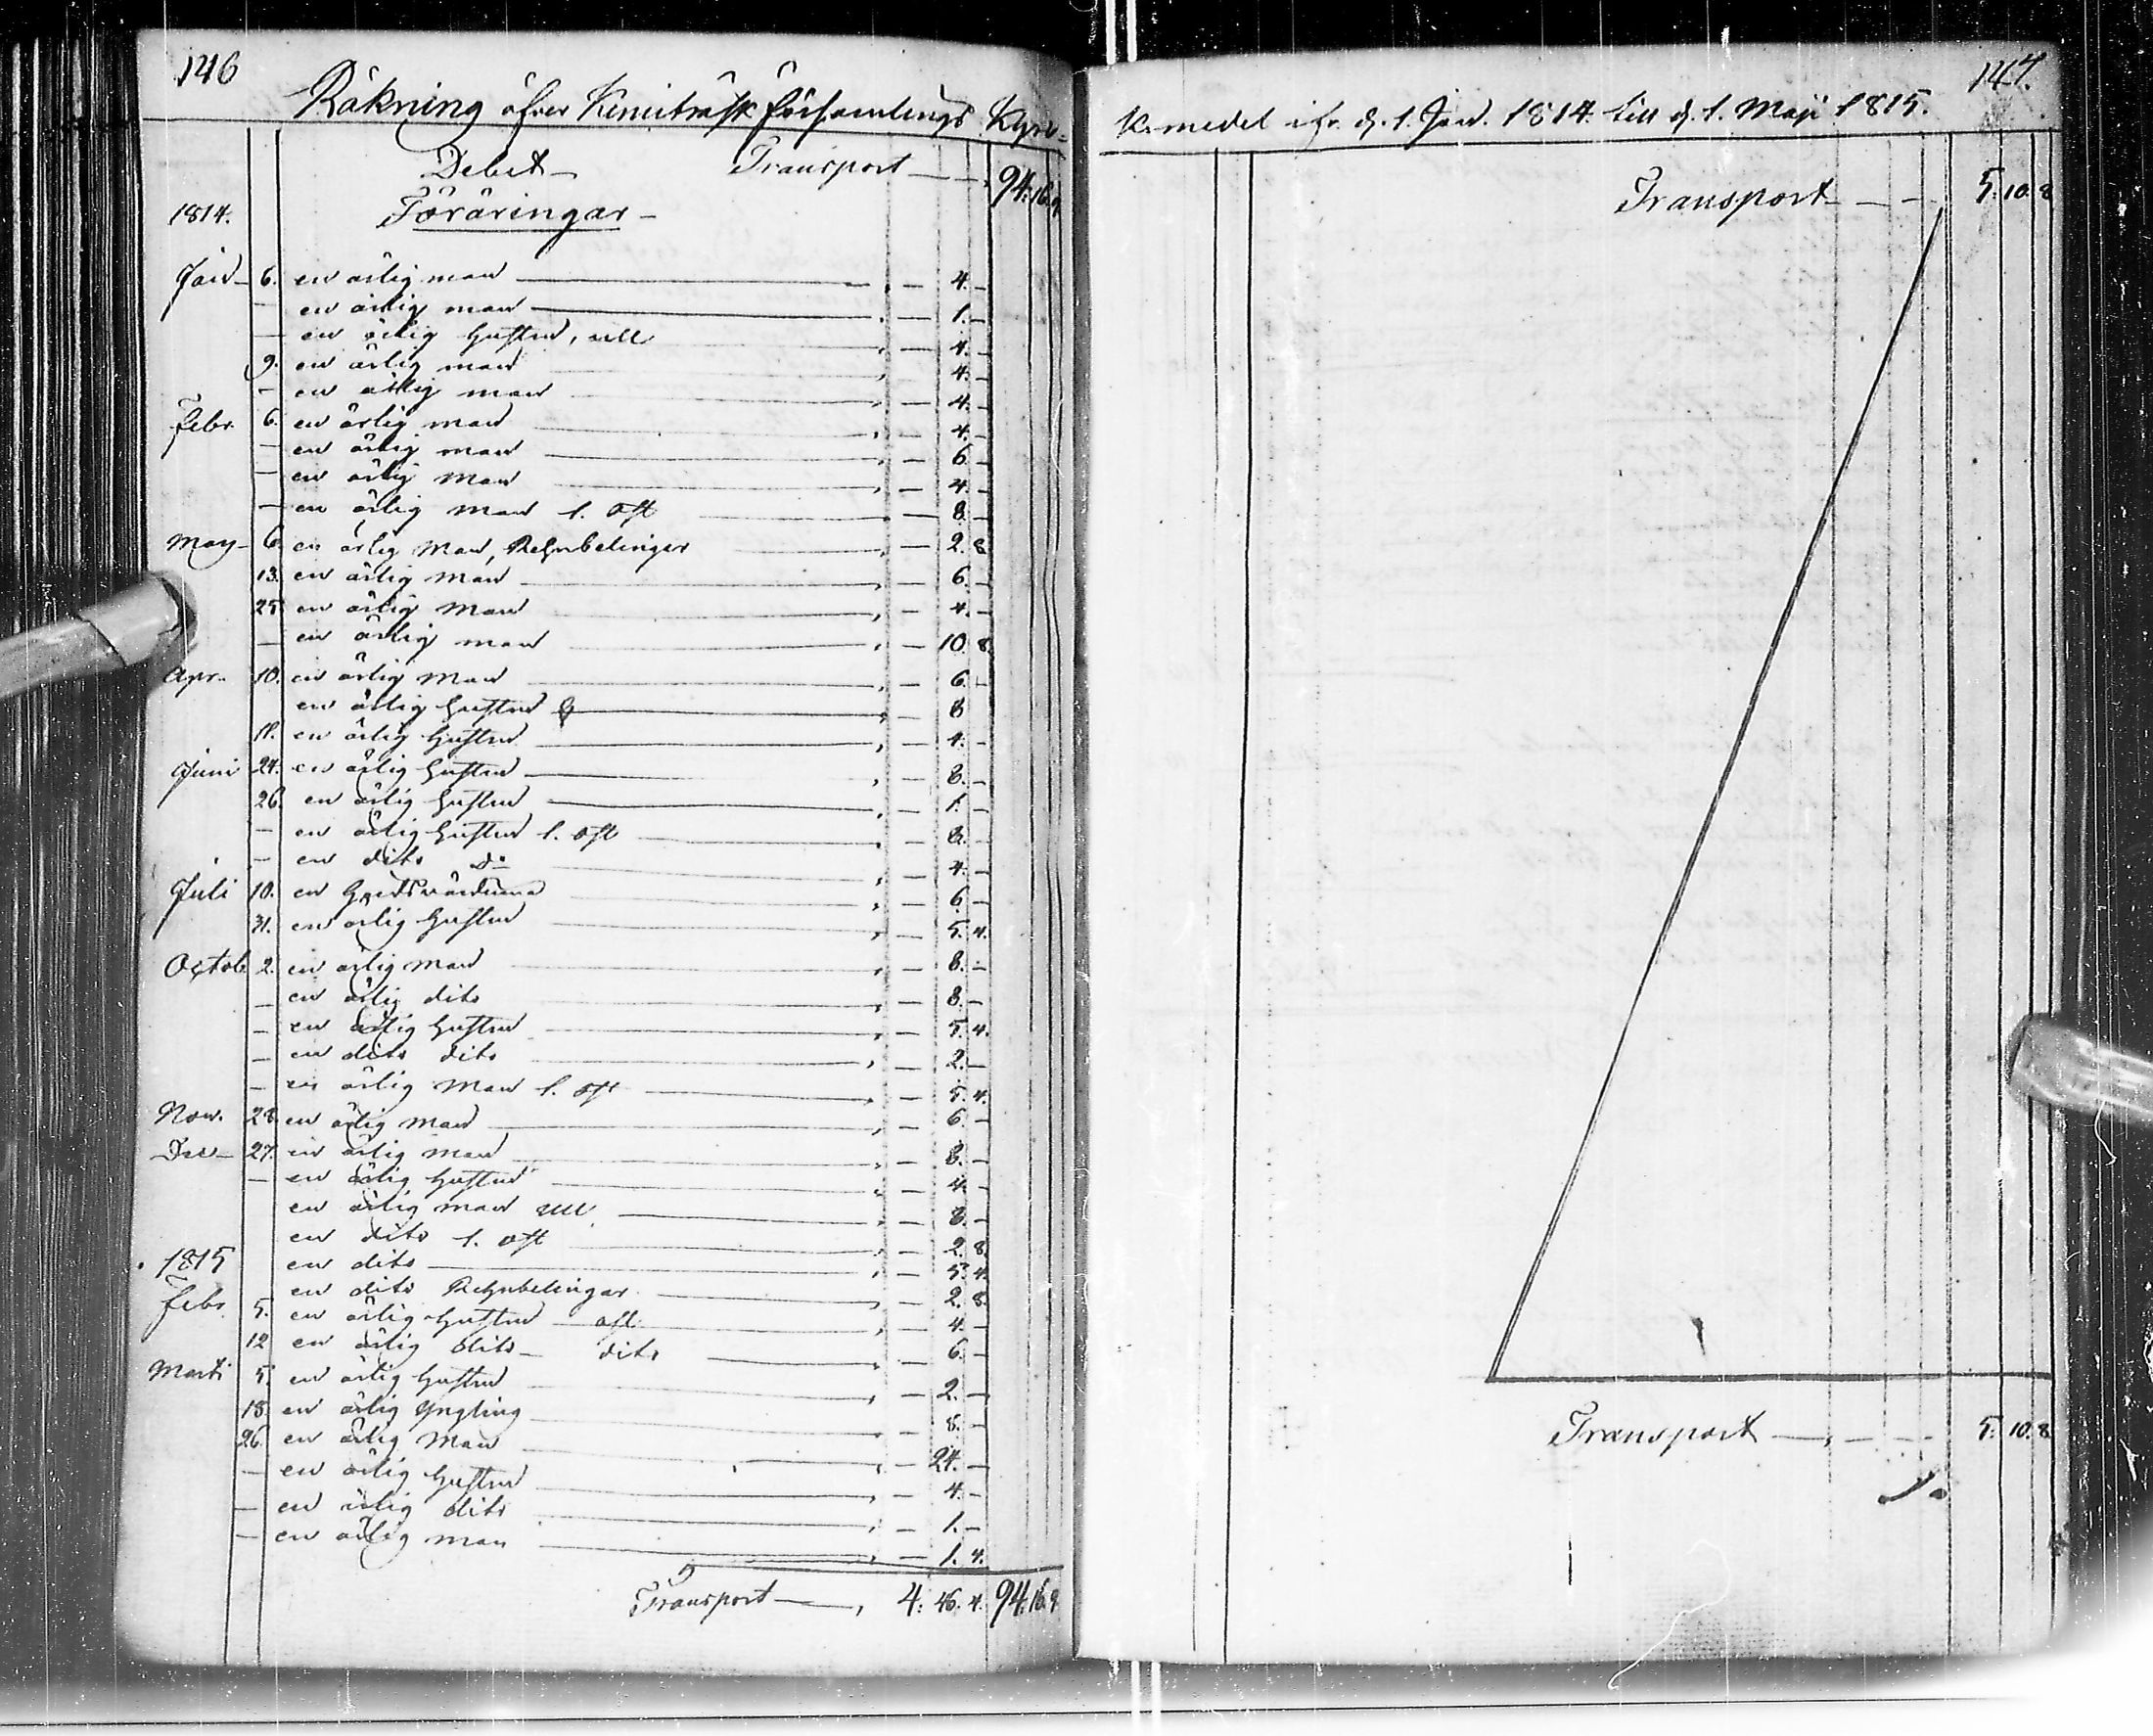 146
Räkning öfver Kemiträsk Församlings Kyr-
Debet Transport — 94. 16. 9
1814. Föräringar
Jan 6. en ärlig man — 4. —
— en ärlig man — 1. —
— en ärlig hustru, ull — 4. —
9. en ärlig man — 4. —
— en ärlig man — 4. —
Febr. 6. en ärlig man — 4. —
— en ärlig man — 6 —
— en ärlig man — 4. —
— en ärlig man 1. ost — 8. —
6. en ärlig man, Rehnbelingar — 2. 8.
13. en ärlig man — 6. —
25 en ärlig man — 4. —
— en ärlig man — 10. 8.
Apr. 10. en ärlig man — 6. —
en ärlig hustru — 8
11. en ärlig hustru — 4. —
Juni 24. en ärlig hustru — 8. —
26. en ärlig hustru — 1. —
— en ärlig hustru 1. ost — 8. —
— en dito do — 4. —
Juli 10. en — 6 —
31. en ärlig hustru — 5. 4.
Octob. 2. en ärlig man — 8. —
— en ärlig dito — 8. —
— en ärlig hustru — 5. 4.
— en dito dito — 2. —
— en ärlig man 1. ost — 5. 4.
Nov. 28. en ärlig man — 6. —
Dec 27. en ärlig man — 8. —
— en ärlig hustru — 4. —
en ärlig man ull — 8. —
en dito 1. ost — 2. 8.
1815 en dito — 5. 4.
en dito Rehnbelingar — 2. 8.
Febr. 5. en ärlig hustru ost — 4. —
12 en ärlig dito dito — 6. —
Marti 5. en ärlig hustru — 2. —
18 en ärlig yngling — 8. —
26 en ärlig man — 24. —
— en ärlig hustru — 4. —
— en ärlig dito — 1. —
— en ärlig man — 1. 4.
Transport — 4. 46. 4. 94. 16. 9
147.
k. medel ifr. d. 1. Jan. 1814 till d. 1. Maji 1815.
Transport — 5. 10. 8
Transport — 5. 10. 8